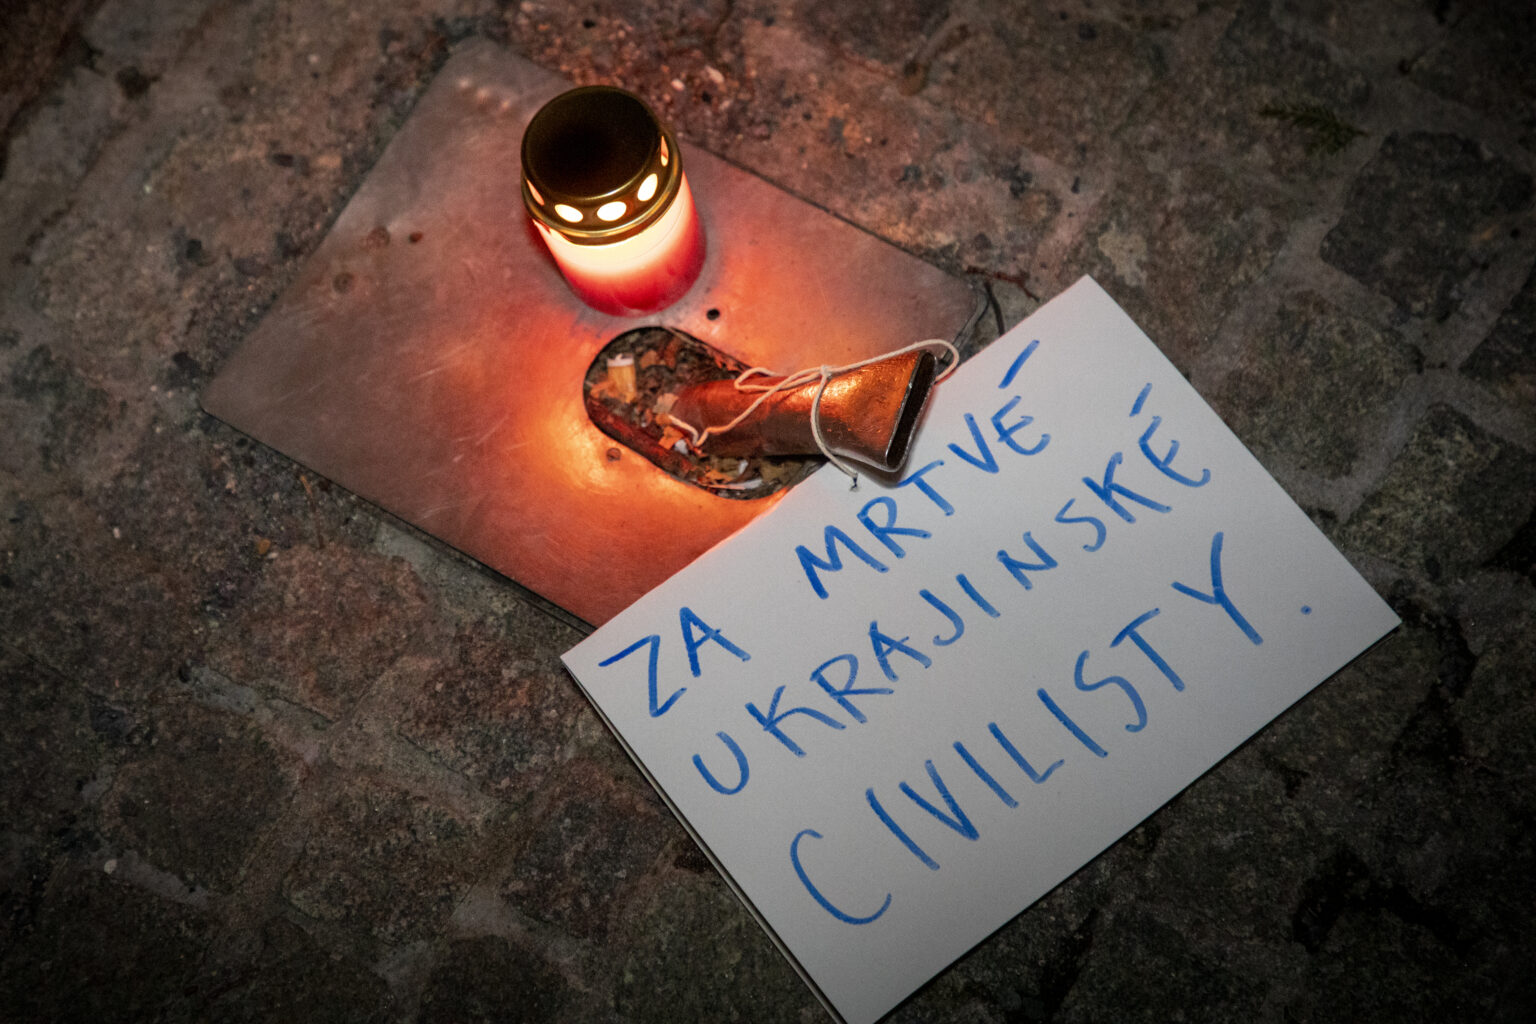 ZA MRTVÉ
UKRAJINSKÉ
CIVILISTY.